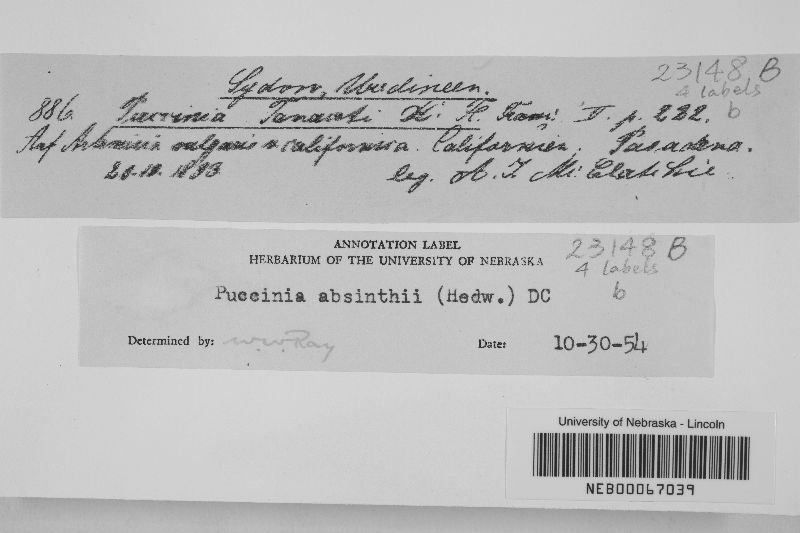 Sydow, Uredineen.
23148 B
4 labels
b
886. Puccinia Tanaceti H. Fragi. II. p. 282.
Auf Artemisia vulgaris v. californica. Californien. Pasadena.
1893 leg. A. J. Mc. Clatchie.
ANNOTATION LABEL
HERBARIUM OF THE UNIVERSITY OF NEBRASKA
23148 B
4 labels
b
Puccinia absinthii (Hedw.) DC
Determined by: W.W. Ray Date: 10-30-54
University of Nebraska - Lincoln
NEB00067039